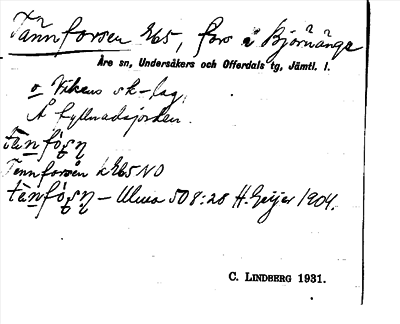 Tännforsen 265, fors å Björnänge
Åre sn, Undersåkers och Offerdals tg, Jämtl. l.
o Vikens sk-lag,
Å fyllnadsjorden.
tànfó̱ṣn̥
Tennforsen 265 NO
tànfó̱ṣn̥ – Ulma 508:28 H. Geijer 1904.
C. LINDBERG 1931.